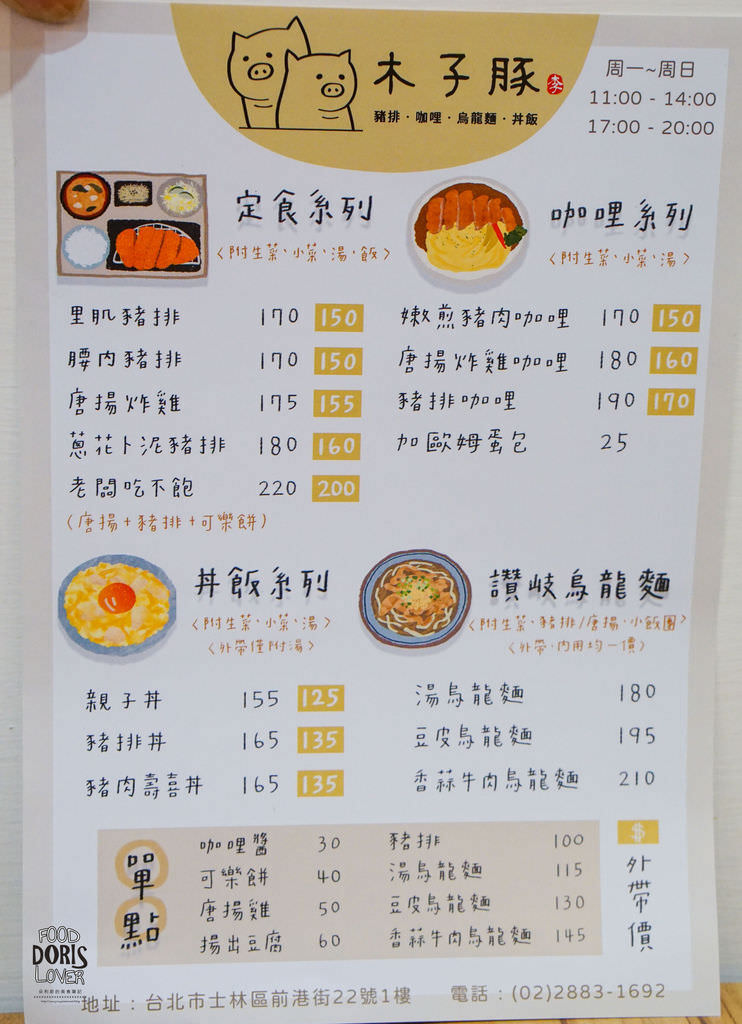 木子豚
李
豬排·咖哩·烏龍麵·丼飯
周一~周日
11:00 - 14:00
17:00 - 20:00
定食系列
〈附生菜、小菜、湯、飯〉
里肌豬排 170 150
腰內豬排 170 150
唐揚炸雞 175 155
蔥花卜泥豬排 180 160
老闆吃不飽 220 200
(唐揚+豬排+可樂餅)
咖哩系列
〈附生菜、小菜、湯〉
嫩煎豬肉咖哩 170 150
唐揚炸雞咖哩 180 160
豬排咖哩 190 170
加歐姆蛋包 25
丼飯系列
〈附生菜、小菜、湯〉
〈外帶僅附湯〉
親子丼 155 125
豬排丼 165 135
豬肉壽喜丼 165 135
讚岐烏龍麵
〈附生菜、豬排/唐揚、小飯團〉
〈外帶、內用均一價〉
湯烏龍麵 180
豆皮烏龍麵 195
香蒜牛肉烏龍麵 210
單點
咖哩醬 30
可樂餅 40
唐揚雞 50
揚出豆腐 60
豬排 100
湯烏龍麵 115
豆皮烏龍麵 130
香蒜牛肉烏龍麵 145
$
外帶價
地址:台北市士林區前港街22號1樓
電話:(02)2883-1692
FOOD
DORIS
LOVER